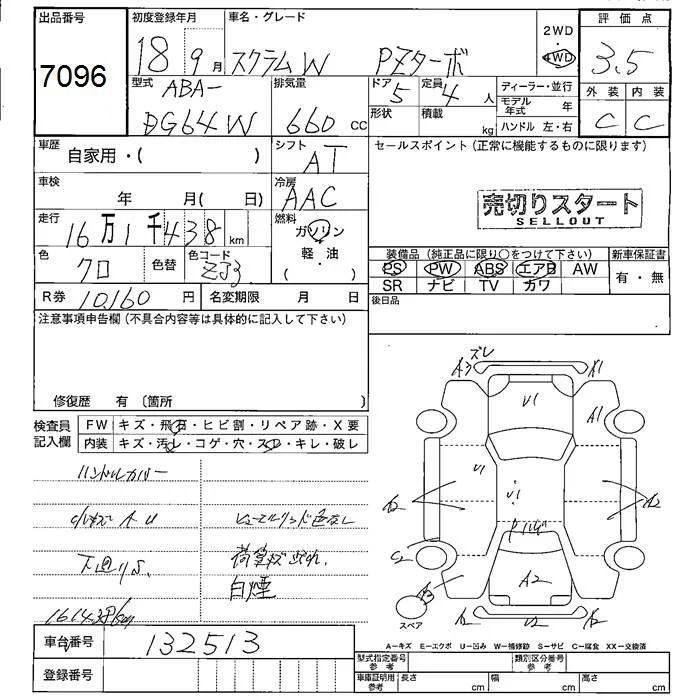 出品番号
7096
初度登録年月
18 9 月
車名・グレード
スクラムW PZターボ
2WD
・
4WD
評価点
3.5
外装 内装
C C
型式
ABA-
DG64W
排気量
660 CC
ドア
5
形状
定員
4 人
積載
kg
ディーラー・並行
モデル年式 年
ハンドル 左・右
車歴
自家用・( )
シフト
AT
セールスポイント(正常に機能するものに限ります)
車検
年 月( 日)
冷房
AAC
売切りスタート
SELLOUT
走行
16万1千438 km
燃料
ガソリン
軽・油
( )
色
クロ
色替
色コード
ZJ3
装備品(純正品に限り○をつけて下さい)
PS PW ABS エアB AW
SR ナビ TV カワ
新車保証書
有・無
R券 10,160 円
名変期限 月 日
後日品
注意事項申告欄(不具合内容等は具体的に記入して下さい)
修復歴 有 〔箇所 〕
検査員記入欄
FW キズ・飛石・ヒビ割・リペア跡・X要
内装 キズ・汚レ・コゲ・穴・スレ・キレ・破レ
ハンドルカバー
下廻りS
荷
白煙
車台番号 132513
登録番号
A3 ズレ A1
U1 A1
U1 U1
A2 A2
C2
A3 A2
A2 U2 A2
スペア
A−キズ E−エクボ U−凹み W−補修跡 S−サビ C−腐食 XX−交換済
型式指定番号 参考
類別区分番号 参考
車庫証明用 参考
長さ cm
幅 cm
高さ cm